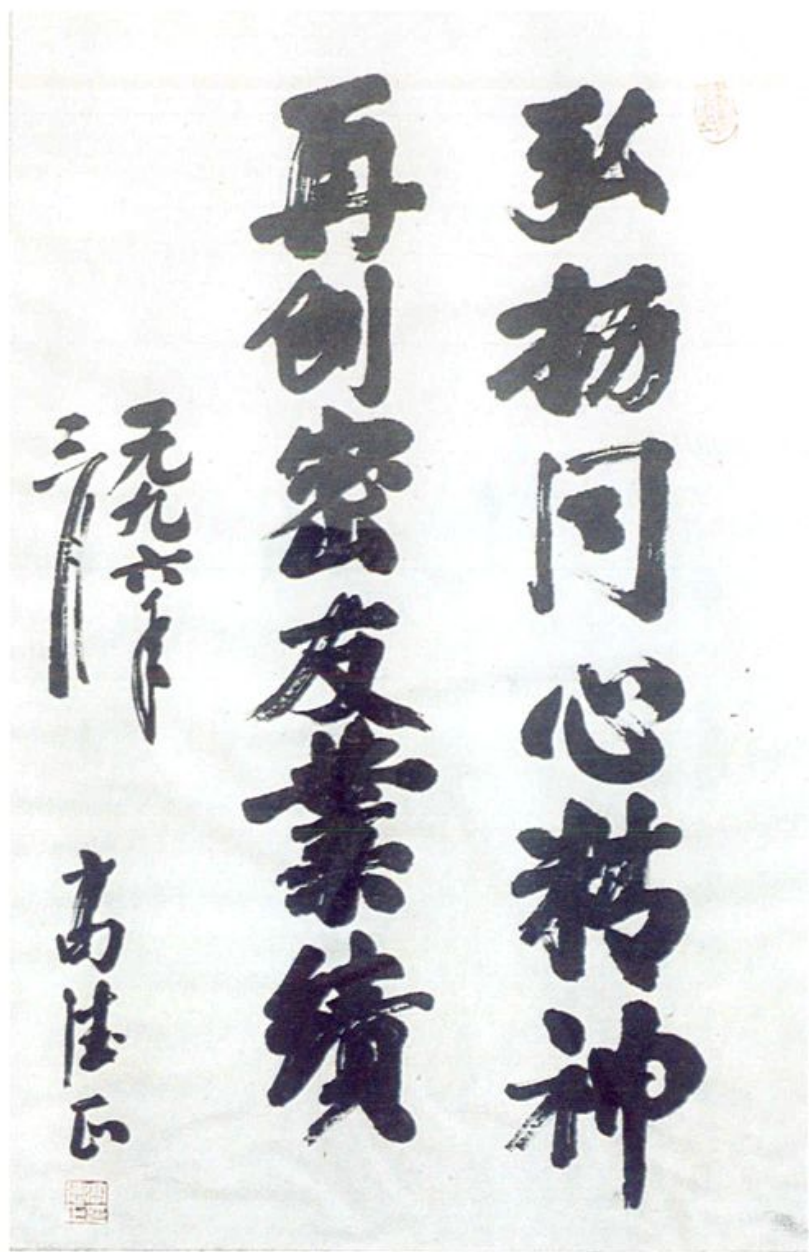 弘扬同心精神
再创密友業績
一九九六年
三月
高德正